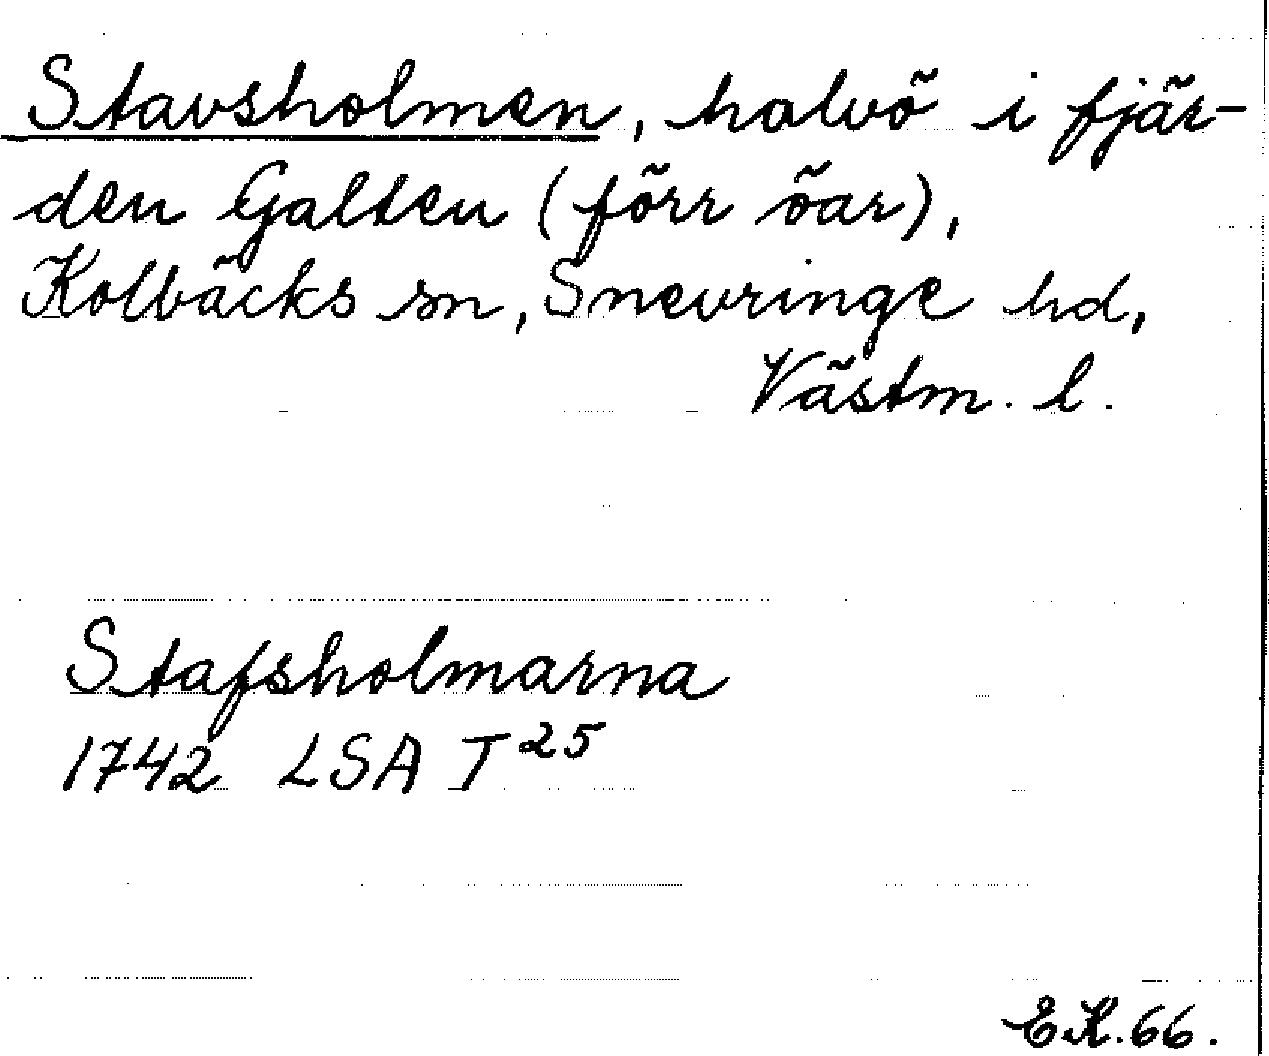 Stavsholmen, halvö i fjär-
den Galten (förr öar),
Kolbäcks sn, Snevringe hd,
Västm. l.
Stafsholmarna
1742 LSA T 25
EK.66.